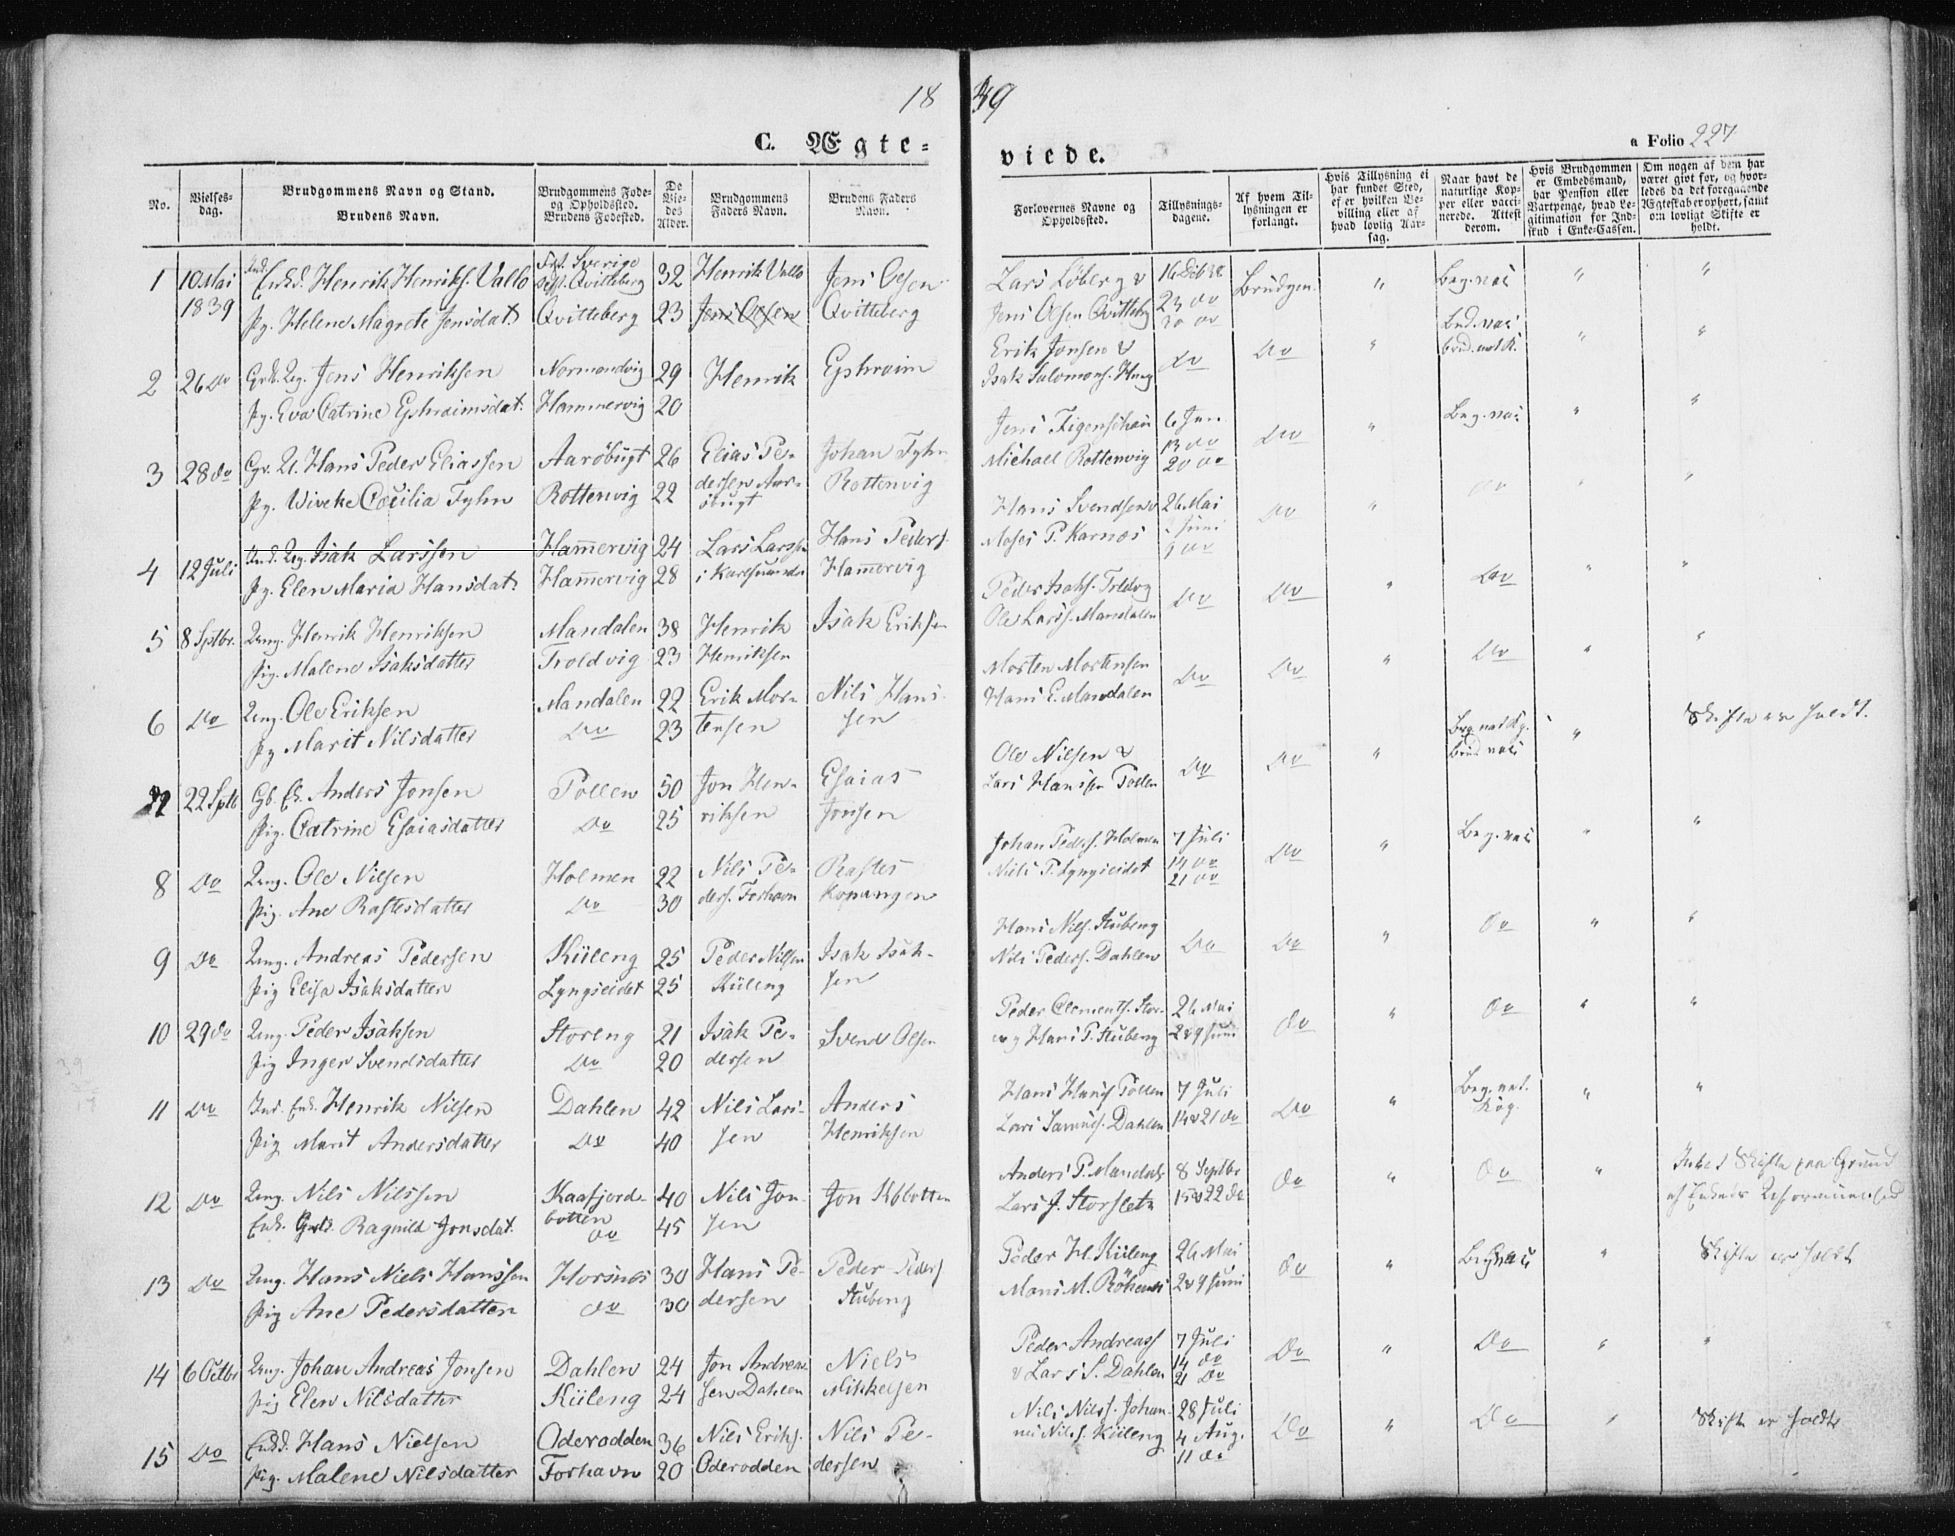 18 39
C. Ægteviede.
a Folio 227
No.
Vielsesdag.
Brudgommens Navn og Stand.
Brudens Navn.
Brudgommens Fode- og Opholdssted.
Brudens Fodested.
De Viedes Alder.
Brudgommens Faders Navn.
Brudens Faders Navn.
Forlovernes Navne og Opholdssted.
Tillysningsdagene.
Af hvem Tillysningen er forlangt.
Hvis Tillysning ei har fundet Sted, ef er hvilken Bevilling eller af hvad lovlig Aarsag.
Naar havt de naturlige Kopper eller vaccinerede. Attest derom.
Hvis Brudgommen er Embedsmand, har Pension eller Vartpenge, hvad Legitimation for Indskud i Enke-Cassen.
Om nogen af dem har været givt for, og hvorledes da det foregaaende Ægteskab er ophørt, samt om lovligt Skifte er holdt.
1 10 Mai 1839 Ind. Enkd. Henrik Henriks. Vallo Sverige Qvitteberg 32 Henrik Vallo Jens Olsen
Pg. Helene Magrete Jensdat. Qvitteberg 23 Jens Olsen Qvitteberg
Lars Löberg & 16 Dcb 38 Brudgm. " Beg. vac " "
Jens Olsen Qvitteberg 23 do 30 do
2 26 do Jens Henriksen Normandvig 29 Henrik Ephraim
Pg. Eva Catrine Ephraimsdat. Hammervig 20
Erik Jonsen & do do " " "
Isak Salomons.
3 28 do Hans Peder Eliassen Aaröbugt 26 Elias Pe- Johan Fyhn
Pg. Wiveke Cæcilia Fyhn Rottenvig 22 dersen Aaröbugt Rottenvig
Jens Figenschau 6 Jan. do " Beg. vac " "
Michael Rottenvig 13 do 20 do
4 12 Juli Isak Larssen Hammervig 24 Lars Larss. Hans Peders.
Pg. Elen Maria Hansdat. Hammervig 28 i Karlsunde Hammervig
Hans Svendsen & 26 Mai do " do " "
Moses P. Karnæs 2 Juni 9 do
5 8 Septbr. Ung. Henrik Henriksen Mandalen 38 Henrik Isak Eriksen
Pig. Malene Isaksdatter Troldvig 23 Henriksen
Peder Isaks. Troldvig do do " do " "
Ole Larss. Mandalen
6 do Ung. Ole Eriksen Mandalen 22 Erik Mor- Nils Han-
Pg Marit Nilsdatter do 23 tensen sen
Morten Mortensen do do " do " "
Hans E. Mandalen
7 22 Sptb Gb. Ek. Anders Jonsen Pollen 50 Jon Hen- Esaias
Pig. Catrine Esaiasdatter do 25 riksen Jonsen
Ole Nilsen & do do " " Skifte er holdt.
Lars Hanssen Pollen
8 do Ung. Ole Nilsen Holmen 22 Nils Pe- Rastes
Pig. Ane Rastesdatter do 30 ders. Forhavn Kopangen
Johan Peders. Holmen 7 Juli do " Beg. vac " "
Niels P. Lyngseidet 14 do 21 do
9 do Ung. Andreas Pedersen Küleng 25 Peder Nilsen Isak Isak-
Pig Elisa Isaksdatter Lyngseidet 25 Küleng sen
Hans Nils. Stubeng do do " do " "
Nils Peders. Dahlen
10 29 do Ung. Peder Isaksen Storeng 21 Isak Pe- Svend Olsen
Pig Inger Svendsdatter do 20 dersen
Peder Clements. Stor- 26 Mai do " do " "
eng Hans P. Stubeng 2 & 9 Juni
11 do Ind. Enk. Henrik Nilsen Dahlen 42 Nils Lars- Anders
Pig Marit Andersdatter do 40 sen Henriksen
Hans Hans Pollen 7 Juli do " Beg. nat. Kop. " "
Lars Samuels. Dahlen 14 & 21 do
12 do Ung. Nils Nilssen Kaafjord- 40 Nils Jon- Jon Kbbotten
Enk. Ragnild Jonsdat. botten do 45 sen
Anders P. Mandalen 8 Septbr do " do " Intet Skifte paa Grund
Lars J. Storslett 15 & 22 do af Enkens Uformuenhed
13 do Ung. Hans Niels Hanssen Horsnes 30 Hans Pe- Peder Peders
Pig Ane Pedersdatter do 30 dersen Stubeng
Peder H. Küleng 26 Mai do " Beg vac " Skifte er holdt
Mons M. 2 & 9 Juni
14 6 Octbr Ung. Johan Andreas Jonsen Dahlen 24 Jon Andreas- Niels
Pig Elen Nilsdatter Küleng 24 sen Dahlen Mikkelsen
Peder Andreass 7 Juli do " do " "
& Lars S. Dahlen 14 do 21 do
15 do Enkd. Hans Nielsen Oderodden 36 Nils Eriks. Nils Pe-
Pig. Malene Nilsdatter Forhavn 20 Oderodden dersen
Nils Nilss. Johan- 28 Juli do " do " Skifte er holdt
nes Nils. Küleng 4 Aug. 11 do